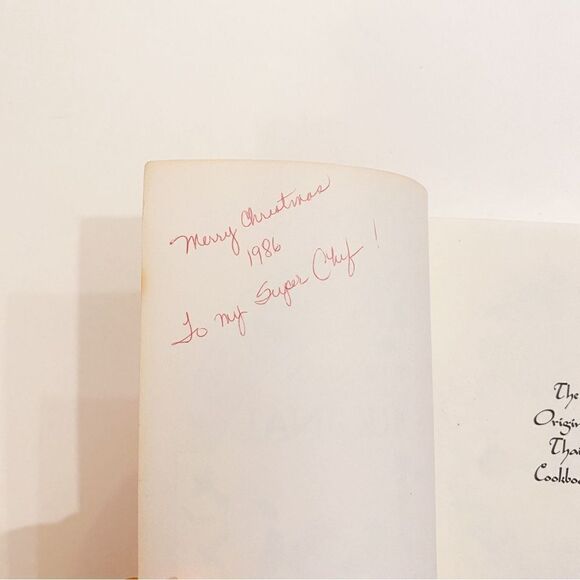 Merry Christmas
1986
To my Super Chef!
The
Origin
Thai
Cookboo